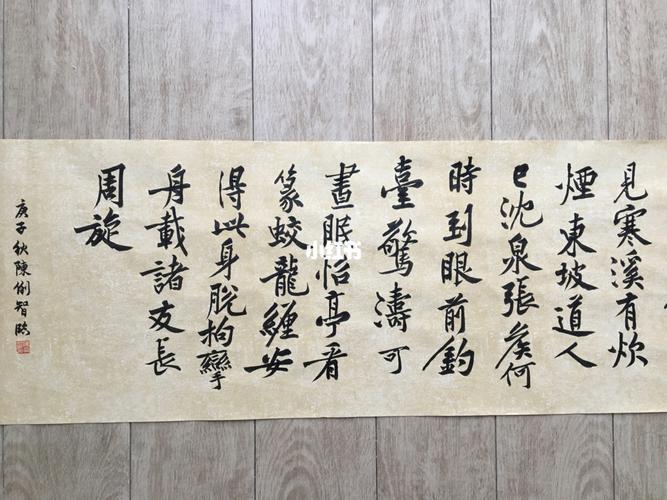 見寒溪有炊
煙東坡道人
已沈泉張侯何
時到眼前釣
臺驚濤可
晝眠怡亭看
篆蛟龍纏安
得此身脫拘攣
舟載諸友長
周旋
庚子秋陳俐智臨
小红书